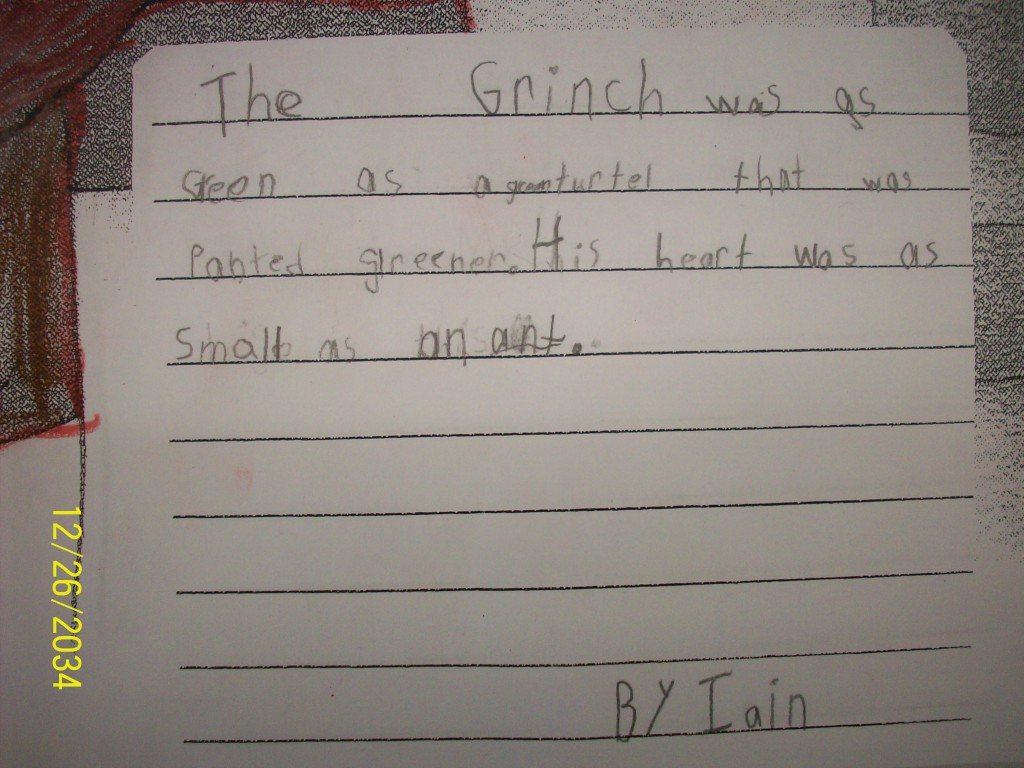 The Grinch was as
Green as a green turtel that was
Panted greener. His heart was as
Small as an ant.
BY Iain
12/26/2034